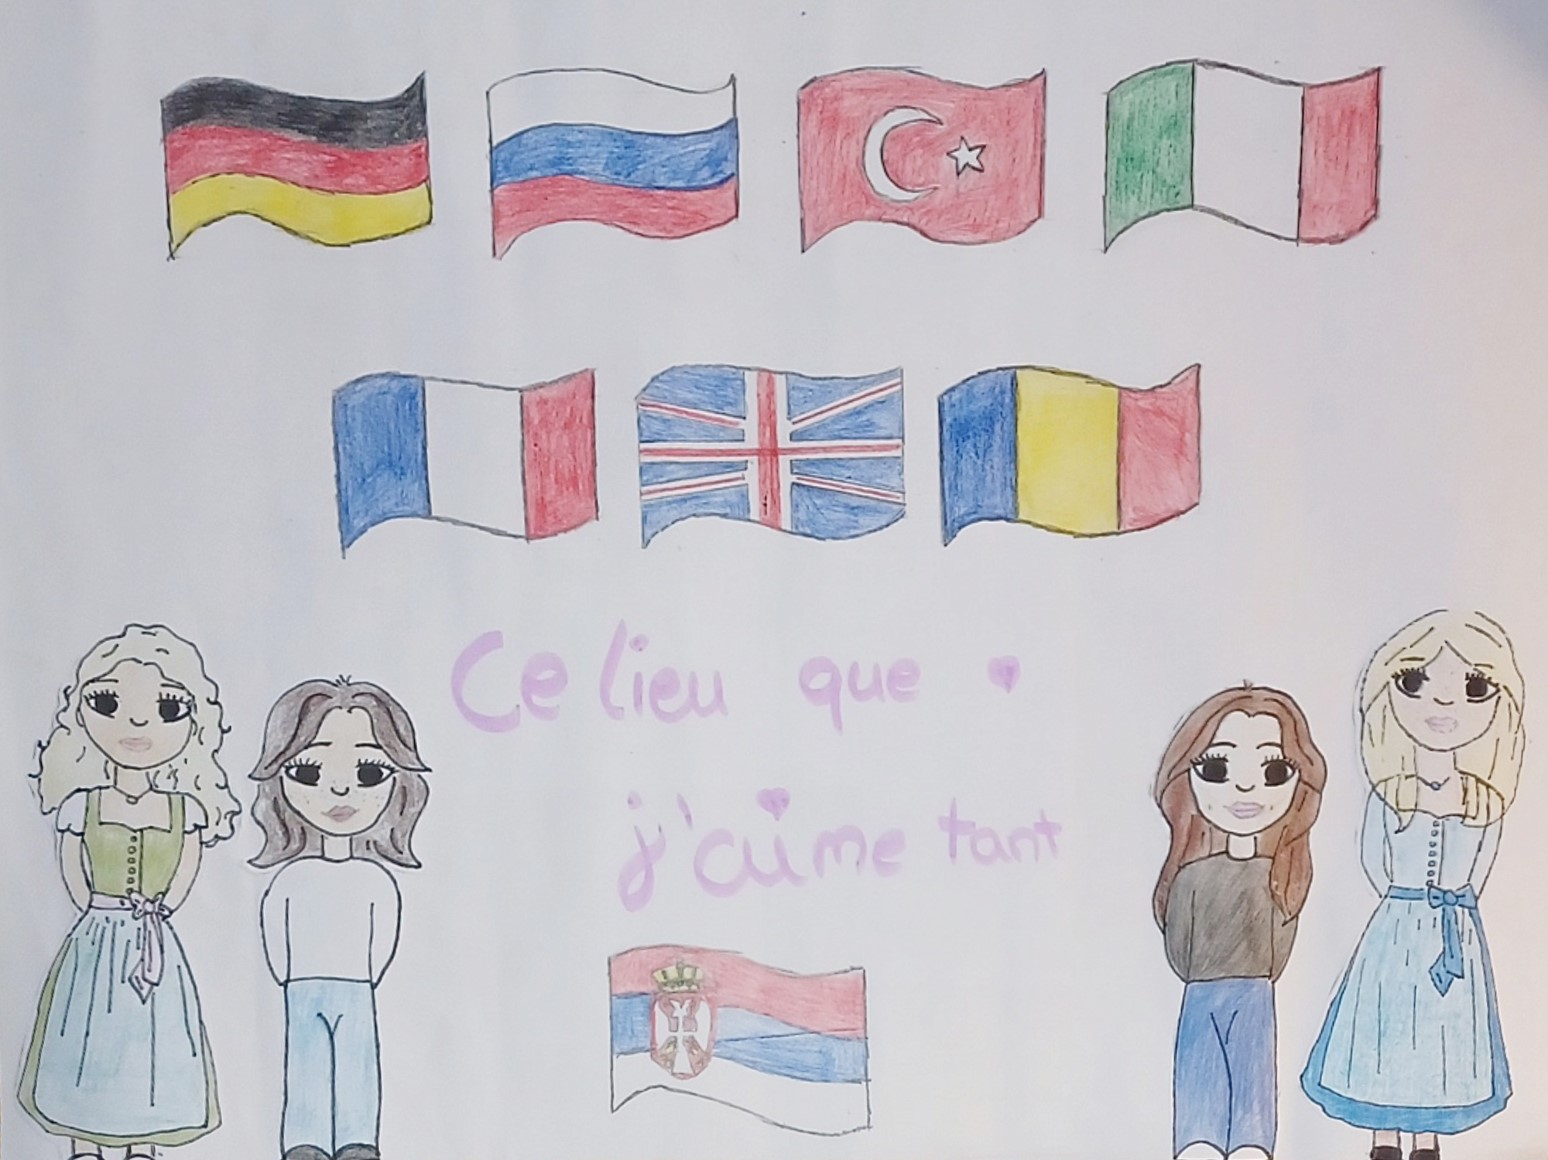 Ce lieu que
j'aime tant